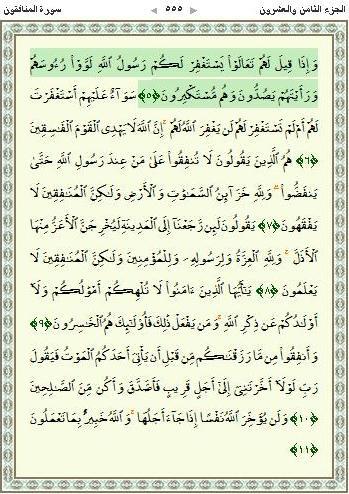 الجزء الثامن والعشرون ٥٥٥ سورة المنافقون
وَإِذَا قِيلَ لَهُمْ تَعَالَوْا۟ يَسْتَغْفِرْ لَكُمْ رَسُولُ ٱللَّهِ لَوَّوْا۟ رُءُوسَهُمْ
وَرَأَيْتَهُمْ يَصُدُّونَ وَهُم مُّسْتَكْبِرُونَ ﴿٥﴾ سَوَآءٌ عَلَيْهِمْ أَسْتَغْفَرْتَ
لَهُمْ أَمْ لَمْ تَسْتَغْفِرْ لَهُمْ لَن يَغْفِرَ ٱللَّهُ لَهُمْ ۚ إِنَّ ٱللَّهَ لَا يَهْدِى ٱلْقَوْمَ ٱلْفَٰسِقِينَ
﴿٦﴾ هُمُ ٱلَّذِينَ يَقُولُونَ لَا تُنفِقُوا۟ عَلَىٰ مَنْ عِندَ رَسُولِ ٱللَّهِ حَتَّىٰ
يَنفَضُّوا۟ ۗ وَلِلَّهِ خَزَآئِنُ ٱلسَّمَٰوَٰتِ وَٱلْأَرْضِ وَلَٰكِنَّ ٱلْمُنَٰفِقِينَ لَا
يَفْقَهُونَ ﴿٧﴾ يَقُولُونَ لَئِن رَّجَعْنَآ إِلَى ٱلْمَدِينَةِ لَيُخْرِجَنَّ ٱلْأَعَزُّ مِنْهَا
ٱلْأَذَلَّ ۚ وَلِلَّهِ ٱلْعِزَّةُ وَلِرَسُولِهِۦ وَلِلْمُؤْمِنِينَ وَلَٰكِنَّ ٱلْمُنَٰفِقِينَ لَا
يَعْلَمُونَ ﴿٨﴾ يَٰٓأَيُّهَا ٱلَّذِينَ ءَامَنُوا۟ لَا تُلْهِكُمْ أَمْوَٰلُكُمْ وَلَآ
أَوْلَٰدُكُمْ عَن ذِكْرِ ٱللَّهِ ۚ وَمَن يَفْعَلْ ذَٰلِكَ فَأُو۟لَٰٓئِكَ هُمُ ٱلْخَٰسِرُونَ ﴿٩﴾
وَأَنفِقُوا۟ مِن مَّا رَزَقْنَٰكُم مِّن قَبْلِ أَن يَأْتِىَ أَحَدَكُمُ ٱلْمَوْتُ فَيَقُولَ
رَبِّ لَوْلَآ أَخَّرْتَنِىٓ إِلَىٰٓ أَجَلٍ قَرِيبٍ فَأَصَّدَّقَ وَأَكُن مِّنَ ٱلصَّٰلِحِينَ
﴿١٠﴾ وَلَن يُؤَخِّرَ ٱللَّهُ نَفْسًا إِذَا جَآءَ أَجَلُهَا ۚ وَٱللَّهُ خَبِيرٌۢ بِمَا تَعْمَلُونَ
﴿١١﴾